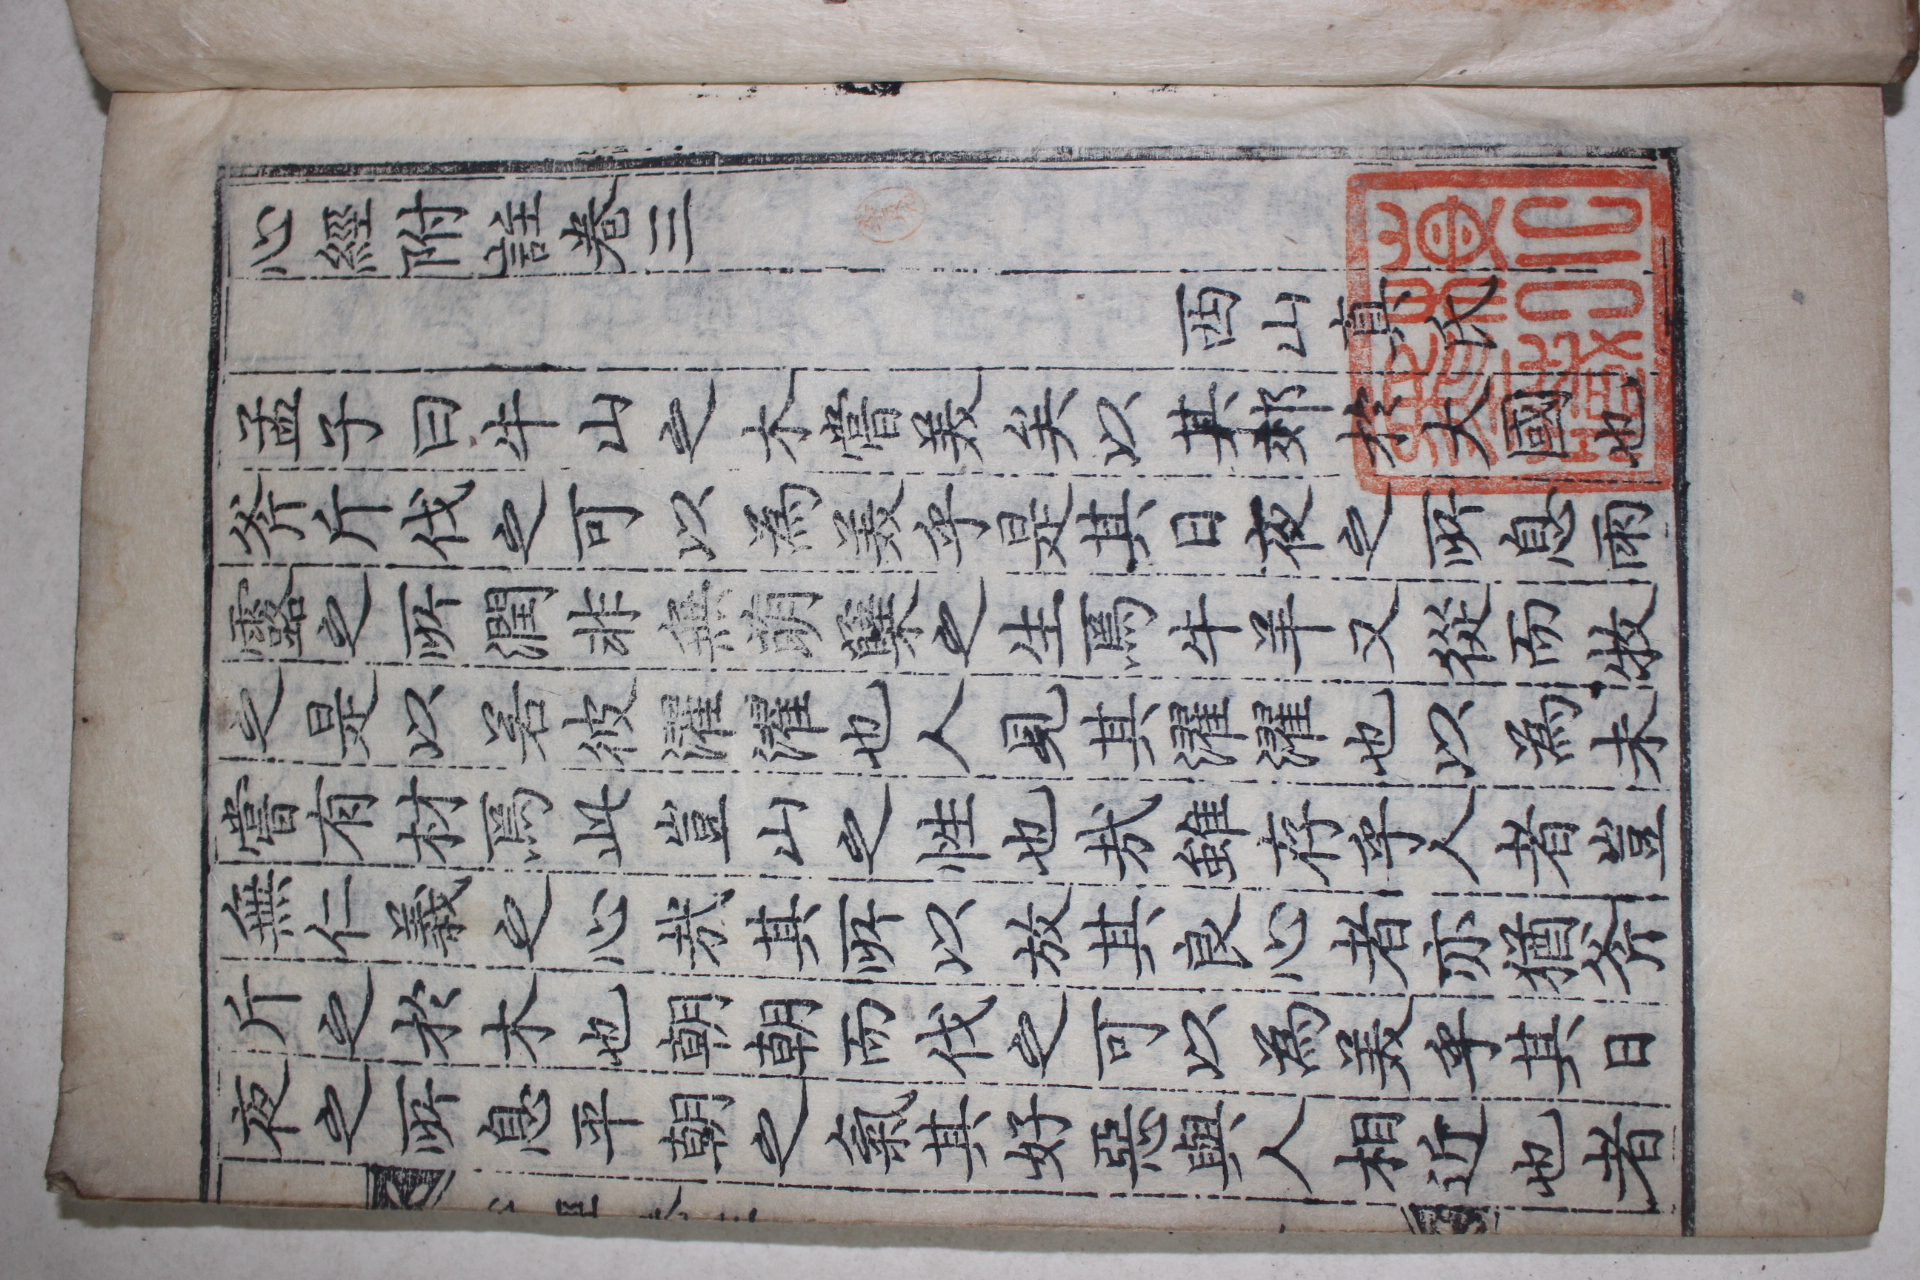 心經附註卷三
西山真氏
孟子曰牛山之木嘗美矣以其郊於大國也
斧斤伐之可以為美乎是其日夜之所息雨
露之所潤非無萌蘖之生焉牛羊又從而牧
之是以若彼濯濯也人見其濯濯也以為未
嘗有材焉此豈山之性也哉雖存乎人者豈
無仁義之心哉其所以放其良心者亦猶斧
斤之於木也朝朝而伐之可以為美乎其日
夜之所息平朝之氣其好惡與人相近也者